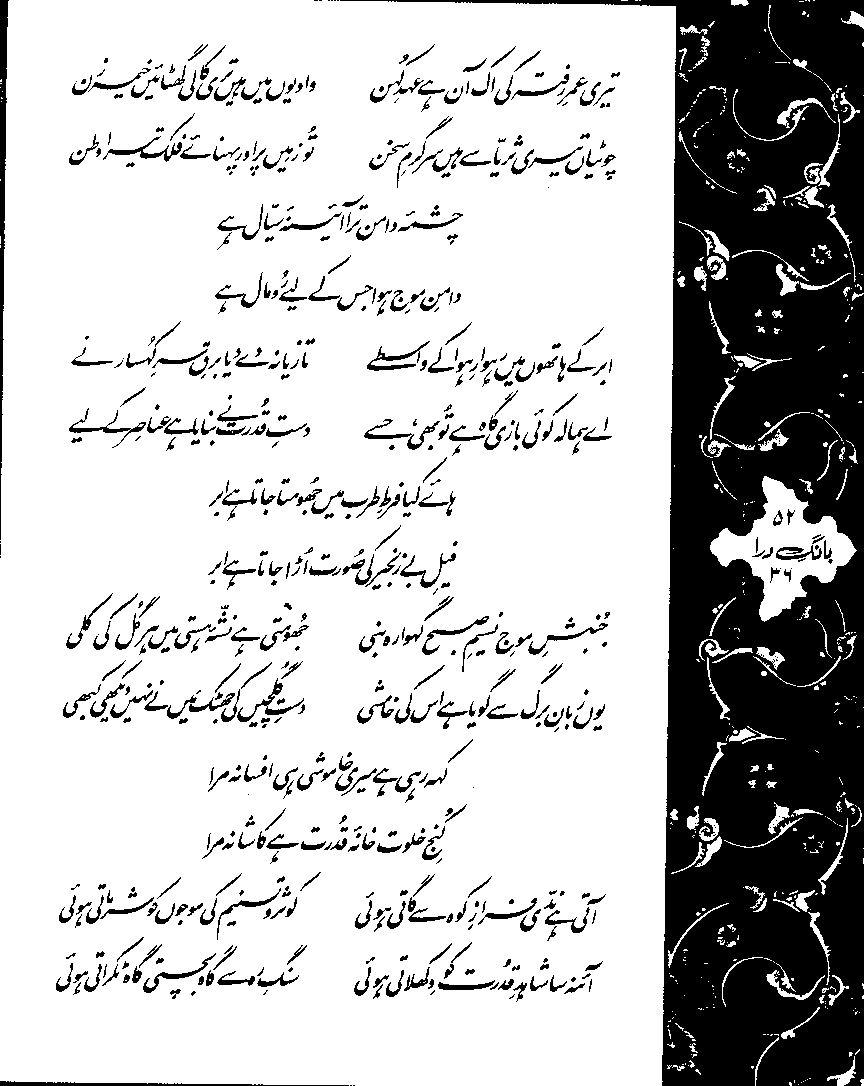 تیری عمرِ رفتہ کی اک آن ہے عہدِ کُہن وادیوں میں ہیں تری کالی گھٹائیں خیمہ زن
چوٹیاں تیری ثریّا سے ہیں سرگرمِ سخن تُو زمیں پر اور پہنائے فلک تیرا وطن
چشمۂ دامن ترا آئینۂ سیّال ہے
دامنِ موجِ ہوا جس کے لیے رُومال ہے
ابر کے ہاتھوں میں رہوارِ ہوا کے واسطے تازیانہ دے دیا برقِ سرِ کُہسار نے
اے ہمالہ کوئی بازی گاہ ہے تُو بھی، جسے دستِ قدرت نے بنایا ہے عناصر کے لیے
ہائے کیا فرطِ طرب میں جھُومتا جاتا ہے ابر
فیلِ بے زنجیر کی صُورت اُڑا جاتا ہے ابر
جُنبشِ موجِ نسیمِ صبح گہوارہ بنی جھُومتی ہے نشّۂ ہستی میں ہر گُل کی کلی
یوں زبانِ برگ سے گویا ہے اس کی خامشی دستِ گُلچیں کی جھٹک مَیں نے نہیں دیکھی کبھی
کہہ رہی ہے میری خاموشی ہی افسانہ مرا
کُنجِ خلوت خانۂ قُدرت ہے کاشانہ مرا
آتی ہے ندّی فرازِ کوہ سے گاتی ہوئی کوثر و تسنیم کی موجوں کو شرماتی ہوئی
آئنہ سا شاہدِ قُدرت کو دِکھلاتی ہوئی سنگِ رہ سے گاہ بچتی گاہ ٹکراتی ہوئی
۵۲
بانگِ درا
۳۶